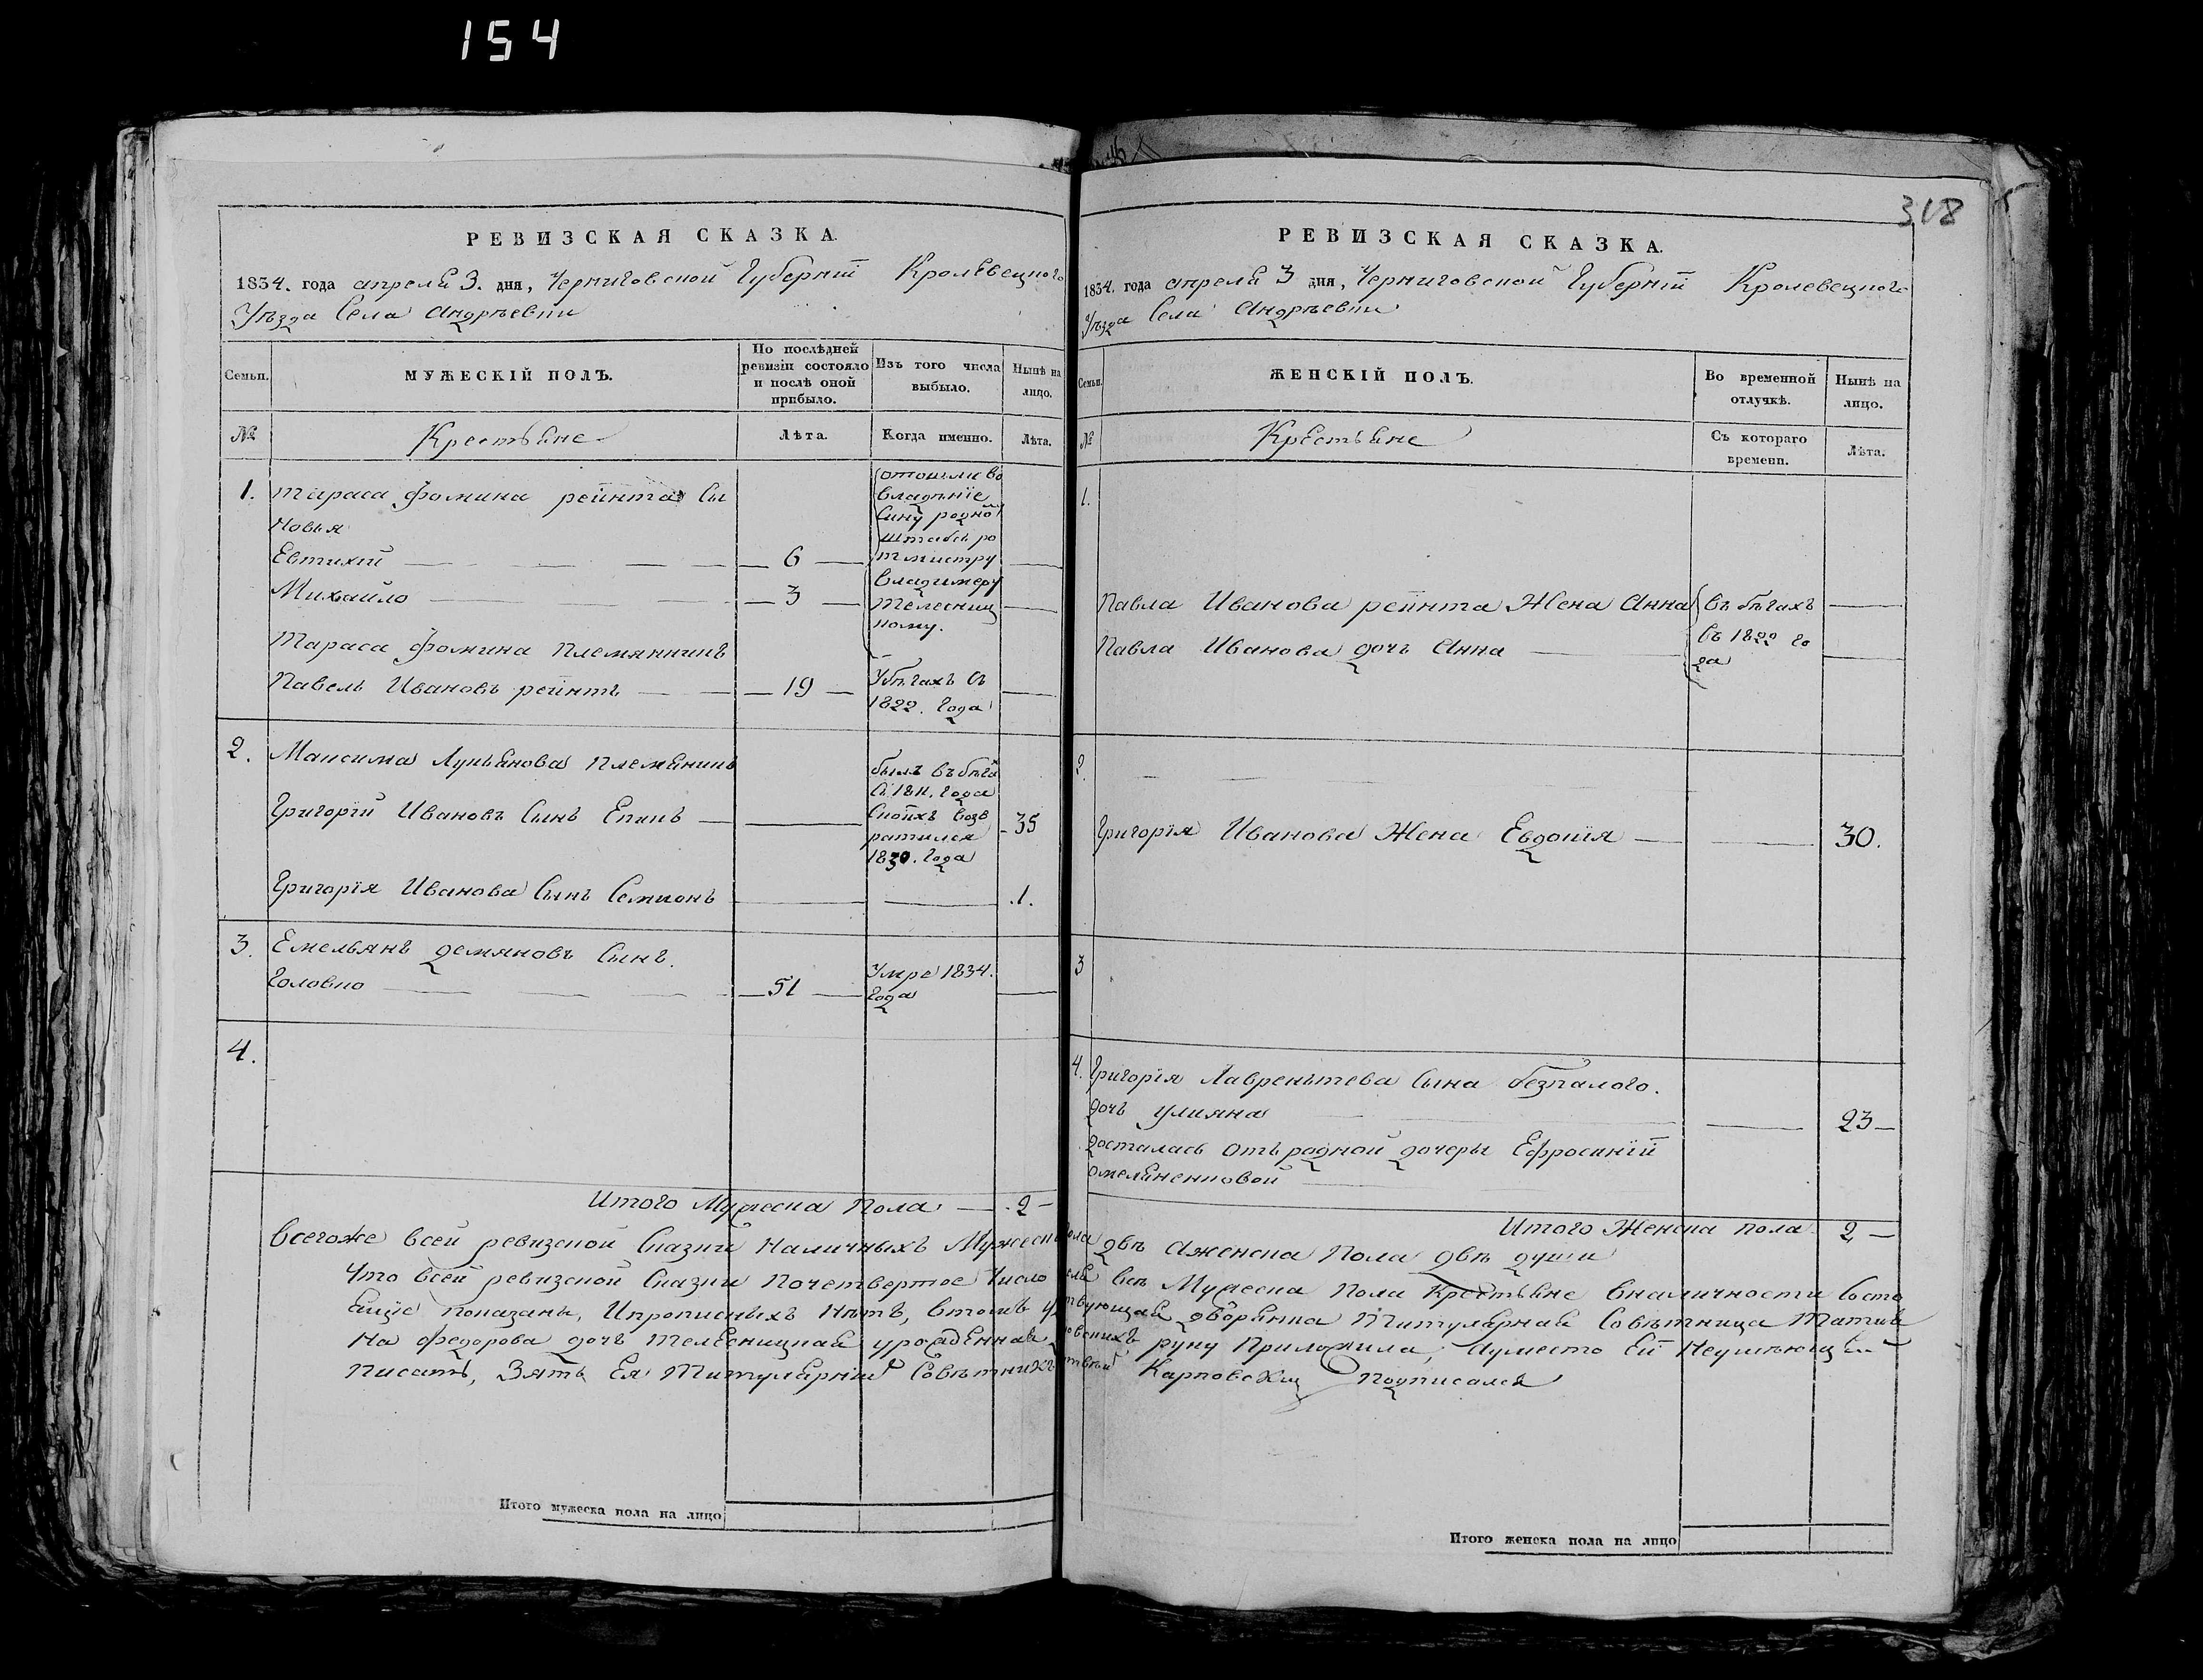 154
318
РЕВИЗСКАЯ СКАЗКА.
1834. года апреля 3. дня, Черниговской Губерніи Кролевецкого
Уѣзда Села Андрѣевки
Семьи.
МУЖЕСКІЙ ПОЛЪ.
По послѣдней ревизіи состояло и послѣ оной прибыло.
Изъ того числа выбыло.
Нынѣ на лицо.
№
Крестьяне
Лѣта.
Когда именно.
Лѣта.
1. Тараса Фомина Сы
новья
Евтихій — 6 —
Михайло — 3 —
отошли во
владѣніе
сину родно
штабъ ро
тмистру
владимеру
ному.
Тараса Фомина Племянникъ
Павелъ Ивановъ — 19 —
Убѣгахъ съ
1822. года
2. Максима Лукьянова Племяникъ
Григорій Ивановъ Сынъ — 35
былъ въ бѣга
съ 1811. года
возв
ратился
1830. года
Григорія Иванова Сынъ Семионъ — .1.
3. Емельянъ демяновъ Сынъ.
Головко — 51 —
Умре 1834.
года
4.
Итого Мужеска Пола — 2 —
РЕВИЗСКАЯ СКАЗКА.
1834. года апреля 3 дня, Черниговской Губерніи Кролевецкого
Уѣзда Села Андрѣевки
Семьи.
ЖЕНСКІЙ ПОЛЪ.
Во временной отлучкѣ.
Нынѣ на лицо.
№
Крестьяне
Съ котораго времени.
Лѣта.
1.
Павла Иванова Жена Анна
Павла Иванова дочь Анна
въ бѣгахъ
въ 1822 го
да
2.
Григорія Иванова Жена Евдокія — 30.
3
4. Григорія Лаврентева Сына безпалого.
дочь улияна — 23 —
досталась отъ родной дочеры Ефросиніи
омеляненковой
Итого Женска пола 2 —
Всегоже всей ревизской Сказки Наличныхъ Мужеск пола двѣ Аженска Пола двѣ души
Что всей ревизской Сказки Почетвертое Число всѣ Мужеска Пола Крестьяне Вналичности Состо
показаны, Ипрописныхъ Нѣтъ, втомъ дворянка Титулярная Совѣтница Татия
На Федорова дочь урожденная руку Приложила, Ауместо Ей Неумѣющей
Писать, Зять Ея Титулярній Совѣтникъ Карповскій Подписался
Итого мужеска пола на лицо
Итого женска пола на лицо